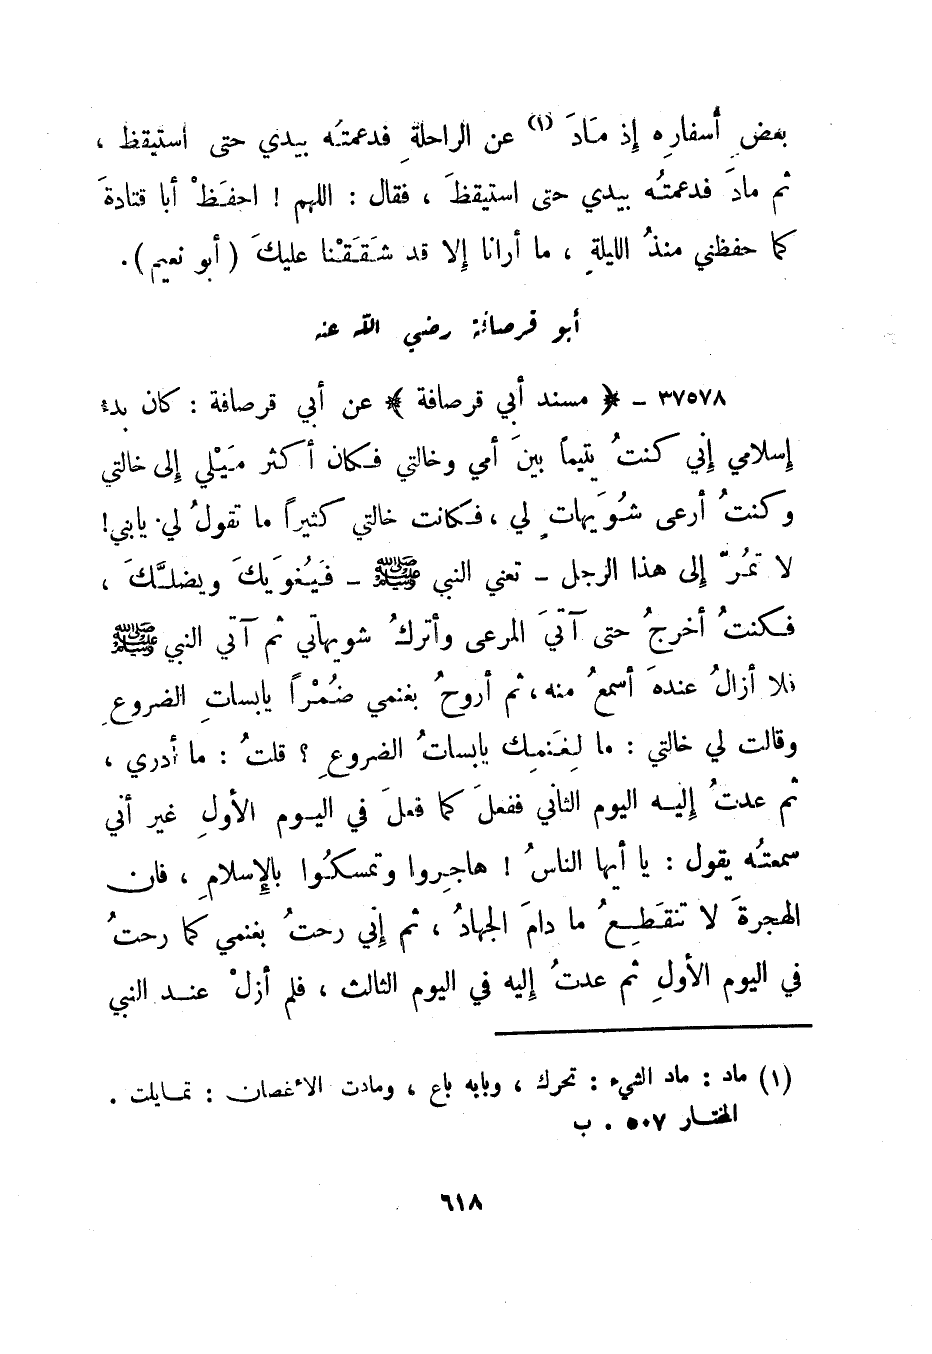 بعضِ أسفارِه إذ مَادَ (١) عن الراحلةِ فدعمتُه بيدي حتى استيقظ ،
ثم مادَ فدعمتُه بيدي حتى استيقظَ ، فقال : اللهم ! احفَظْ أبا قتادةَ
كما حفظني منذُ الليلةِ ، ما أرانا إلا قد شَقَقْنا عليكَ ( أبو نعيم ) .
أبو قرصافة رضي الله عنه
٣٧٥٧٨ - ﴿ مسند أبي قرصافة ﴾ عن أبي قرصافة : كان بدء
إسلامي إني كنتُ يتيماً بينَ أمي وخالتي فكان أكثر مَيْلي إلى خالتي
وكنتُ أرعى شُوَيهاتٍ لي ، فكانت خالتي كثيراً ما تقولُ لي يابني !
لا تمُرّ إلى هذا الرجل - تعني النبي ﷺ - فَيُغوَيكَ ويضلَّكَ ،
فكنتُ أخرجُ حتى آتيَ المرعى وأتركُ شويهاتي ثم آتي النبي ﷺ
فلا أزالُ عندهَ أسمعُ منه ، ثم أروحُ بغنمي ضُمْراً يابساتِ الضروعِ
وقالت لي خالتي : ما لِغَنمِك يابساتُ الضروعِ ؟ قلتُ : ما أدري ،
ثم عدتُ إليه اليوم الثاني ففعلَ كما فعلَ في اليوم الأولِ غير أني
سمعتُه يقول : يا أيها الناسُ ! هاجِروا وتمسكُوا بالإسلامِ ، فان
الهجرةَ لا تنقَطِعُ ما دامَ الجهادُ ، ثم إني رحتُ بغنمي كما رحتُ
في اليوم الأولِ ثم عدتُ إليه في اليوم الثالث ، فلم أزلْ عند النبي
(١) ماد : ماد الشيء : تحرك ، وبابه باع ، ومادت الأغصان : تمايلت .
المختار ٥٠٧ . ب
٦١٨